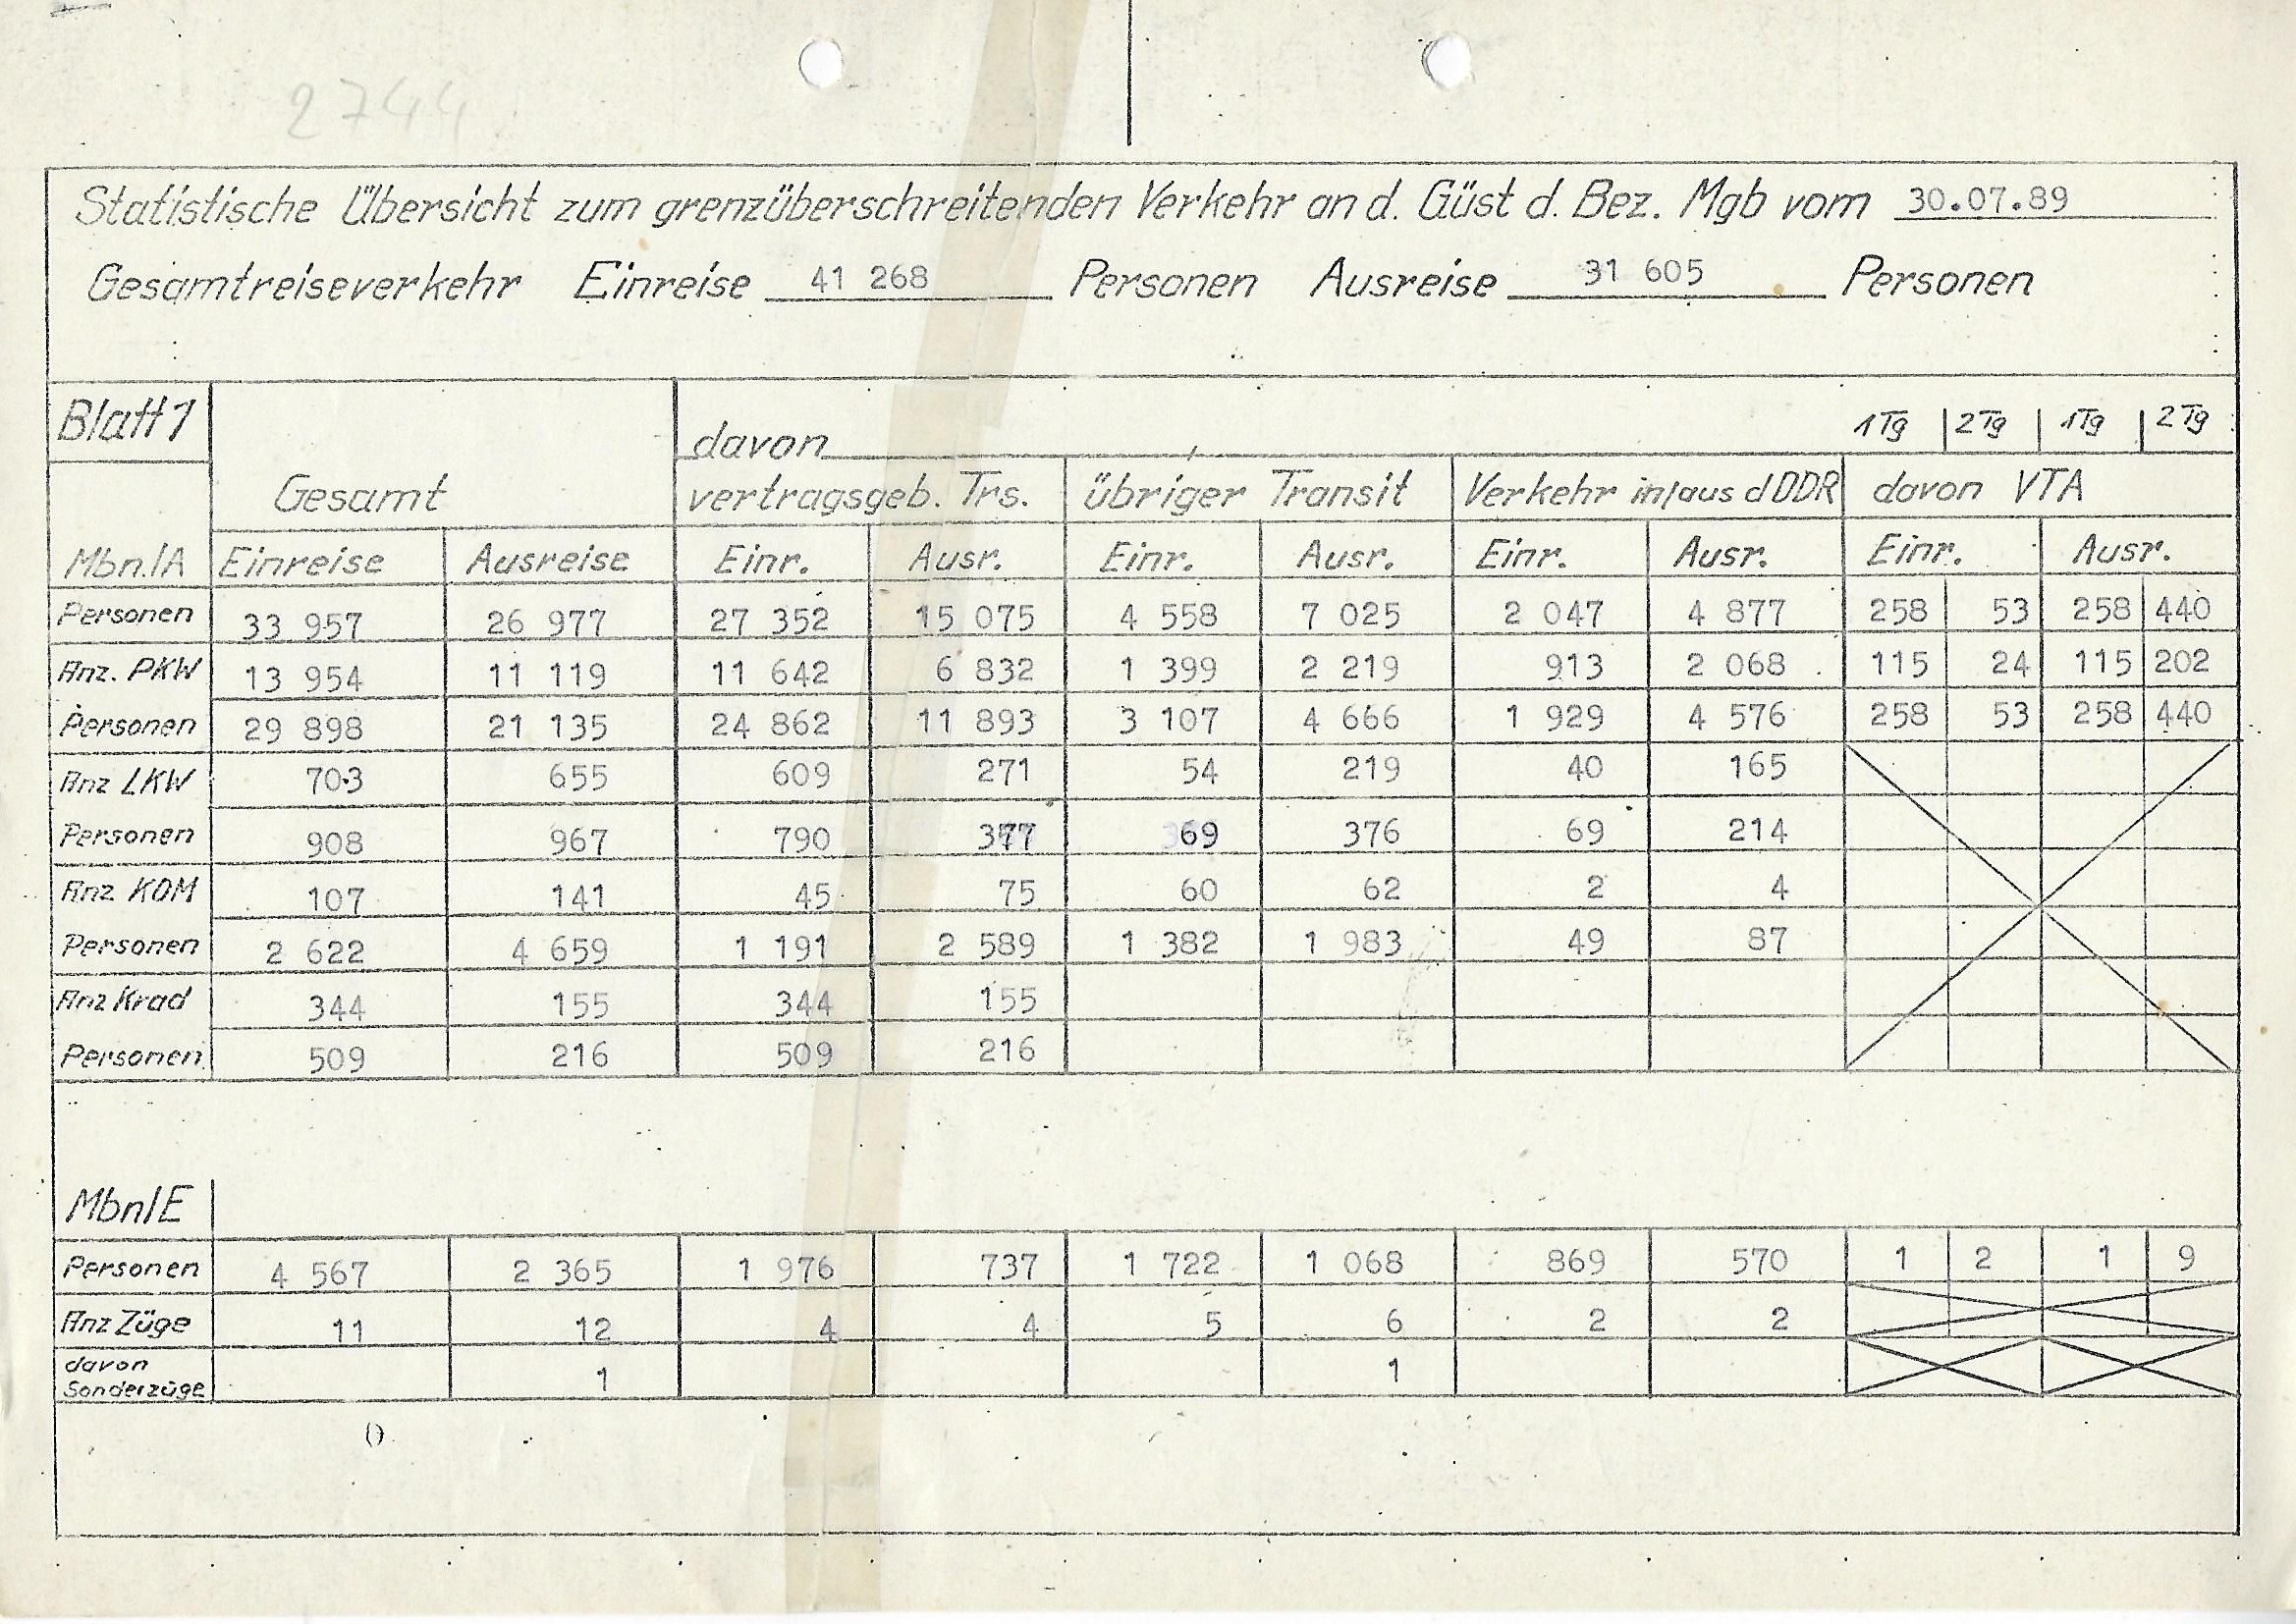 2744
Statistische Übersicht zum grenzüberschreitenden Verkehr an d. Güst d. Bez. Mgb vom 30.07.89
Gesamtreiseverkehr Einreise 41 268 Personen Ausreise 31 605 Personen
Blatt 1 davon 1Tg 2Tg 1Tg 2Tg
Gesamt vertragsgeb. Trs. übriger Transit Verkehr in/aus d DDR davon VTA
Mbn/A Einreise Ausreise Einr. Ausr. Einr. Ausr. Einr. Ausr. Einr. Ausr.
Personen 33 957 26 977 27 352 15 075 4 558 7 025 2 047 4 877 258 53 258 440
Anz. PKW 13 954 11 119 11 642 6 832 1 399 2 219 913 2 068 115 24 115 202
Personen 29 898 21 135 24 862 11 893 3 107 4 666 1 929 4 576 258 53 258 440
Anz LKW 703 655 609 271 54 219 40 165
Personen 908 967 790 377 69 376 69 214
Anz KOM 107 141 45 75 60 62 2 4
Personen 2 622 4 659 1 191 2 589 1 382 1 983 49 87
Anz Krad 344 155 344 155
Personen 509 216 509 216
Mbn/E
Personen 4 567 2 365 1 976 737 1 722 1 068 869 570 1 2 1 9
Anz Züge 11 12 4 4 5 6 2 2
davon
Sonderzüge 1 1